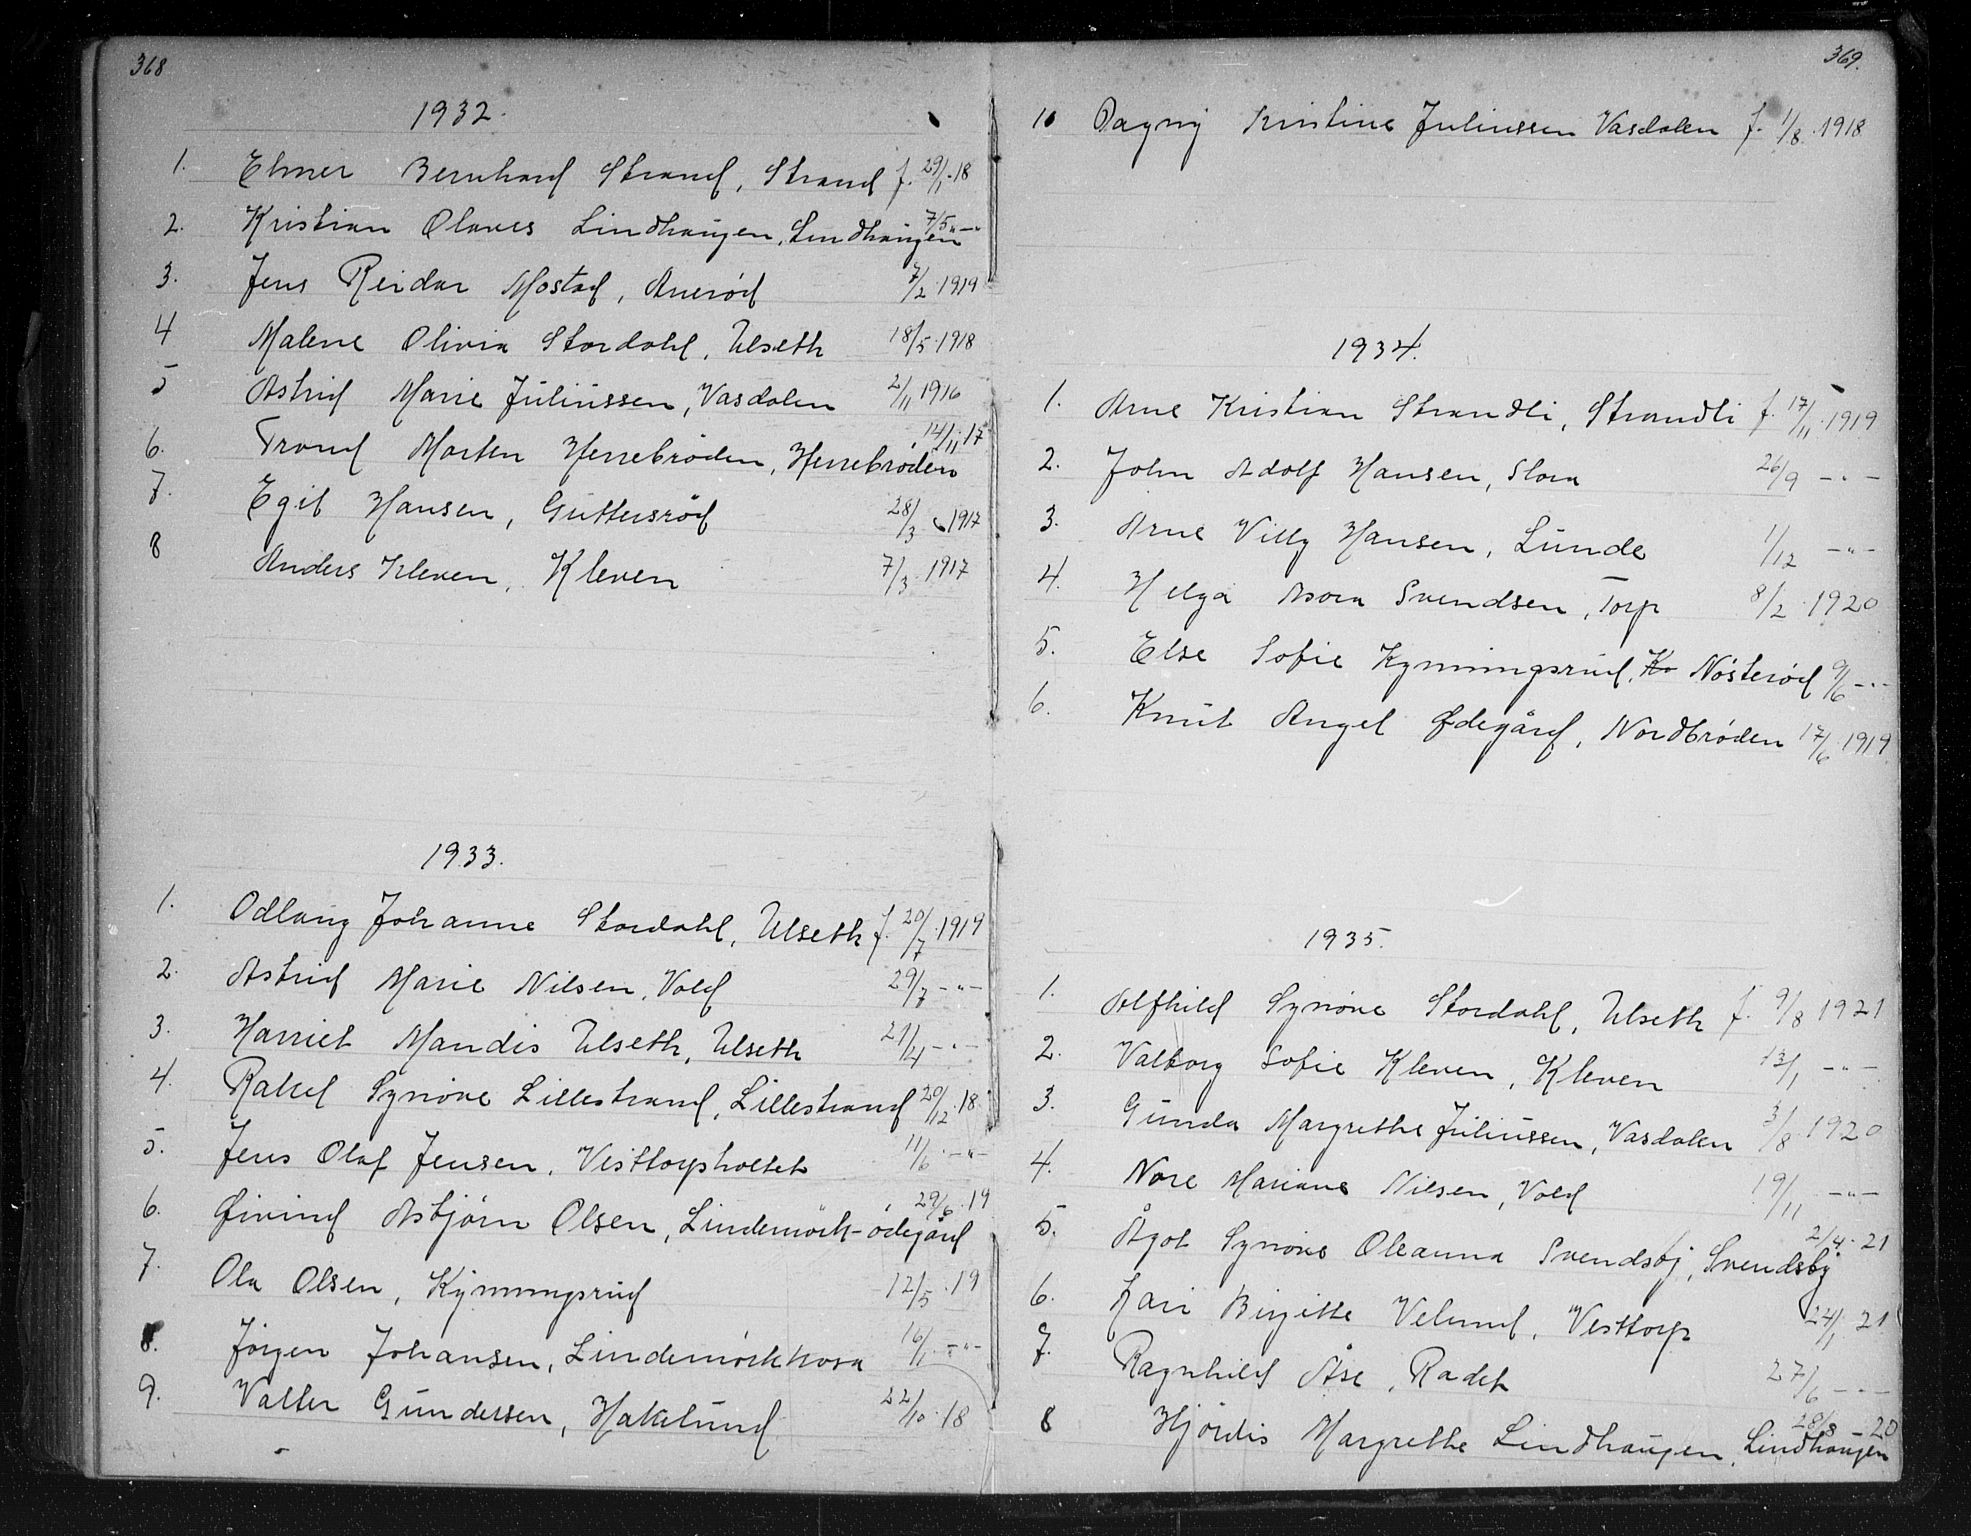 368
1932.
1. Elmer Bernhard Strand, Strand f. 29/1-18
2. Kristian Olaves Lindhaugen, Lindhaugen 7/5 "-"
3. Jens Reidar Mostad, Anerød 7/2 1919
4 Malene Olivia Stordahl, Ulseth 18/5 1918
5 Astrid Marie Juliussen, Vasdalen 2/11 1916
6. Trond Morten Herrebrøden, Herrebrøden 14/11 17
7. Egil Hansen, Guttersrød 28/3 1917
8 Anders Kleven, Kleven 7/3 1917
1933.
1. Odlaug Johanne Stordahl, Ulseth f. 20/7 1919
2. Astrid Marie Nilsen, Vold 29/7 -"-
3. Harriet Mandis Ulseth, Ulseth 21/4 -"-
4. Rakel Synøve Lillestrand, Lillestrand 20/12 18
5. Jens Olaf Jensen, Visttorpholtet 11/6 -"-
6. Øivind Asbjørn Olsen, Lindemörk-ödegård 29/6 19
7. Ola Olsen, Kynningsrud 12/5 19
8. Jörgen Johansen, Lindemörkkosa 16/1 -"-
9. Valter Gundersen, Hakelund 22/10 18
369.
10 Dagny Kristine Juliussen Vasdalen f. 1/8 1918
1934.
1. Arne Kristian Strandli, Strandli f. 17/11 1919
2. John Adolf Hansen, Slora 26/9 -"-
3. Arne Villy Hansen, Lunde 1/12 -"-
4. Helga Asora Svendsen, Torp 8/2 1920
5. Else Sofie Kynningsrud, Nösterød 9/6 -"-
6. Knut Angel Ødegård, Nordbrøden 17/6 1919
1935.
1. Alfhild Synöve Stordahl, Ulseth f. 9/8 1921
2. Valborg Sofie Kleven, Kleven 13/1 -"-
3. Gunda Margrethe Juliussen, Vasdalen 3/8 1920
4. Nore Mariane Nilsen, Vold 19/11 -"-
5. Ågot Synöve Oleanna Svendsbj, Svendsby 2/4 21
6. Kari Birgitte Velund, Visttorp 24/1 21
7. Ragnhild Åse, Radet 27/6 -"-
8 Hjördis Margrethe Lindhaugen, Lindhaugen 28/8 20